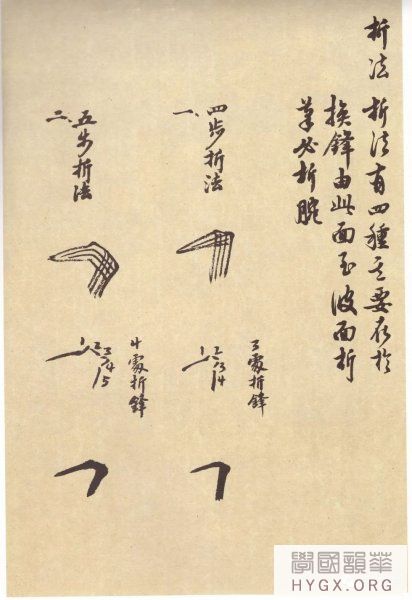 折法 折法有四種其要在於
換鋒由此面至彼面折
筆必折腕
一、四步折法
3處折鋒
1 2 3 4
二、五步折法
4處折鋒
1 2 3 4 5
學國韻華
HYGX.ORG